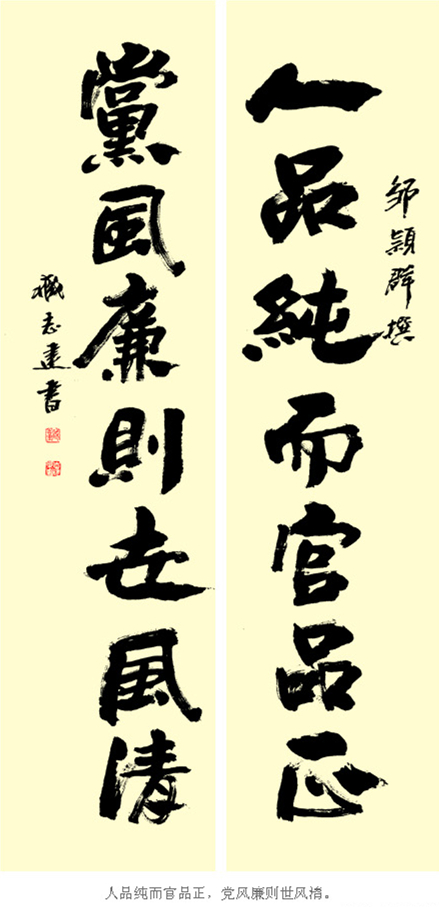 邹颕群撰
人品純而官品正
黨風廉則世風清
臧志建書
人品纯而官品正，党风廉则世风清。